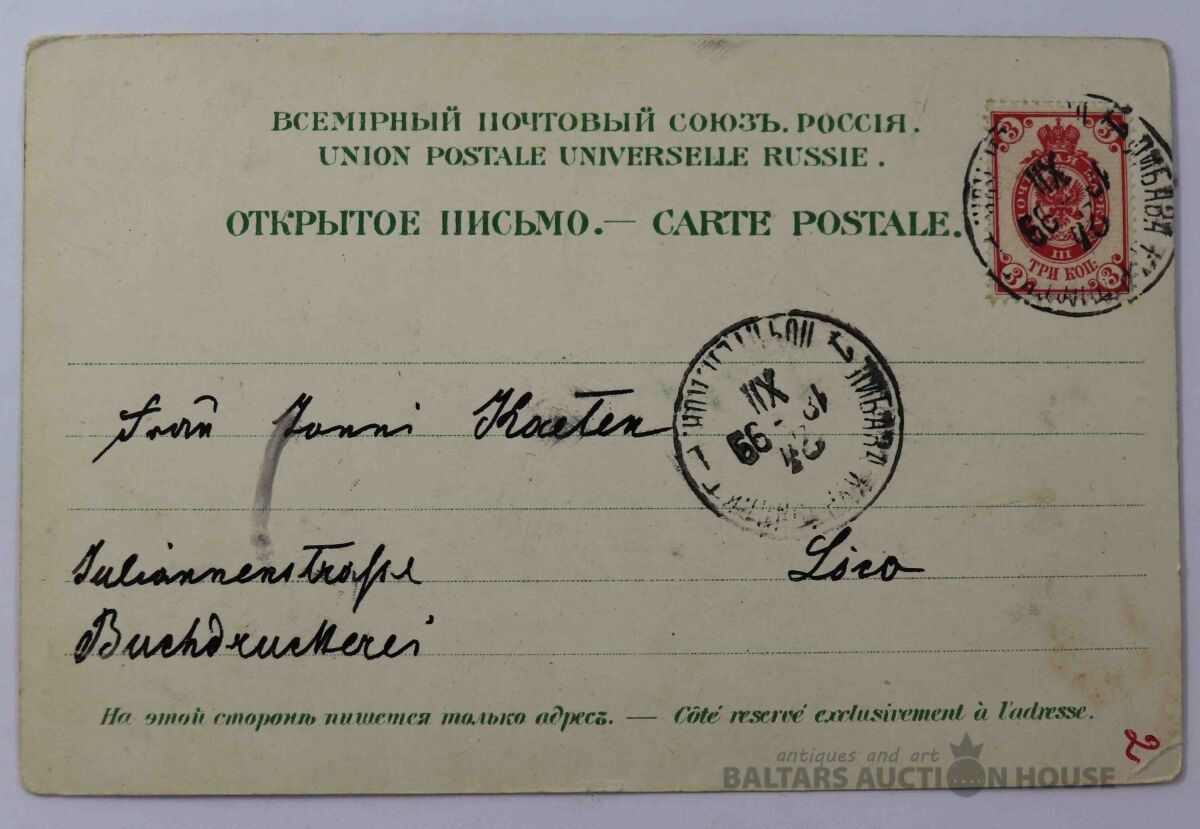 ВСЕМІРНЫЙ ПОЧТОВЫЙ СОЮЗЪ. РОССІЯ.
UNION POSTALE UNIVERSELLE RUSSIE.
ОТКРЫТОЕ ПИСЬМО.— CARTE POSTALE.
3 3
XII
99
III
3 ТРИ КОП. 3
XII
31
99
Jonni Kaeten
Loco
Juliannenstraße
Buchdruckerei
На этой сторонѣ пишется только адресъ. — Côté reservé exclusivement à l'adresse.
2
antiques and art
BALTARS AUCTION HOUSE